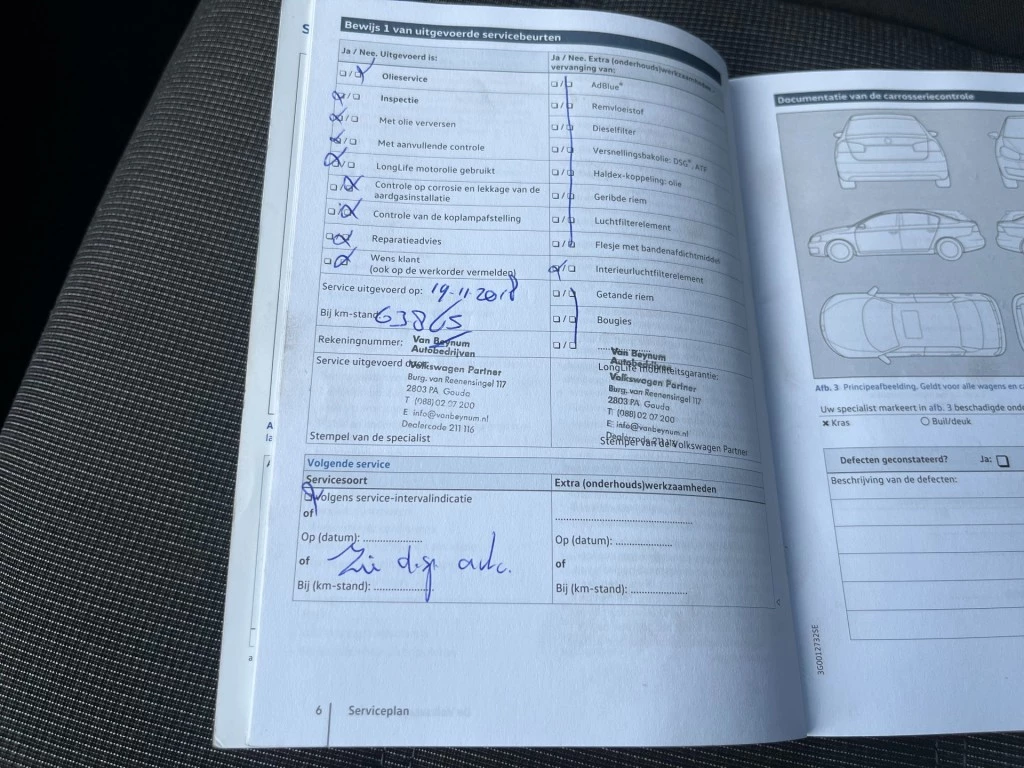 Bewijs 1 van uitgevoerde servicebeurten
Ja / Nee. Uitgevoerd is:
Olieservice
Inspectie
Met olie verversen
Met aanvullende controle
LongLife motorolie gebruikt
Controle op corrosie en lekkage van de
aardgasinstallatie
Controle van de koplampafstelling
Reparatieadvies
Wens klant
(ook op de werkorder vermelden)
Service uitgevoerd op: 19-11-2018
Bij km-stand 63865
Rekeningnummer:
Van Beynum
Autobedrijven
Service uitgevoerd door:
Volkswagen Partner
Burg. van Reenensingel 117
2803 PA Gouda
T (088) 02 07 200
E info@vanbeynum.nl
Dealercode 211 116
Stempel van de specialist
Ja / Nee. Extra (onderhouds)werkzaamheden
vervanging van:
AdBlue®
Remvloeistof
Dieselfilter
Versnellingsbakolie: DSG®, ATF
Haldex-koppeling: olie
Geribde riem
Luchtfilterelement
Flesje met bandenafdichtmiddel
Interieurluchtfilterelement
Getande riem
Bougies
Van Beynum
Autobedrijven
LongLife mobiliteitsgarantie:
Volkswagen Partner
Burg. van Reenensingel 117
2803 PA Gouda
T: (088) 02 07 200
E: info@vanbeynum.nl
Dealercode 211 116
Stempel van de Volkswagen Partner
Volgende service
Servicesoort
Volgens service-intervalindicatie
of
Op (datum): ....................
of
Bij (km-stand): ....................
Extra (onderhouds)werkzaamheden
Op (datum): ....................
of
Bij (km-stand): ....................
6 Serviceplan
Documentatie van de carrosseriecontrole
Afb. 3 Principeafbeelding. Geldt voor alle wagens en
Uw specialist markeert in afb. 3 beschadigde
× Kras
○ Buil/deuk
Defecten geconstateerd? Ja:
Beschrijving van de defecten:
3G0012732SE